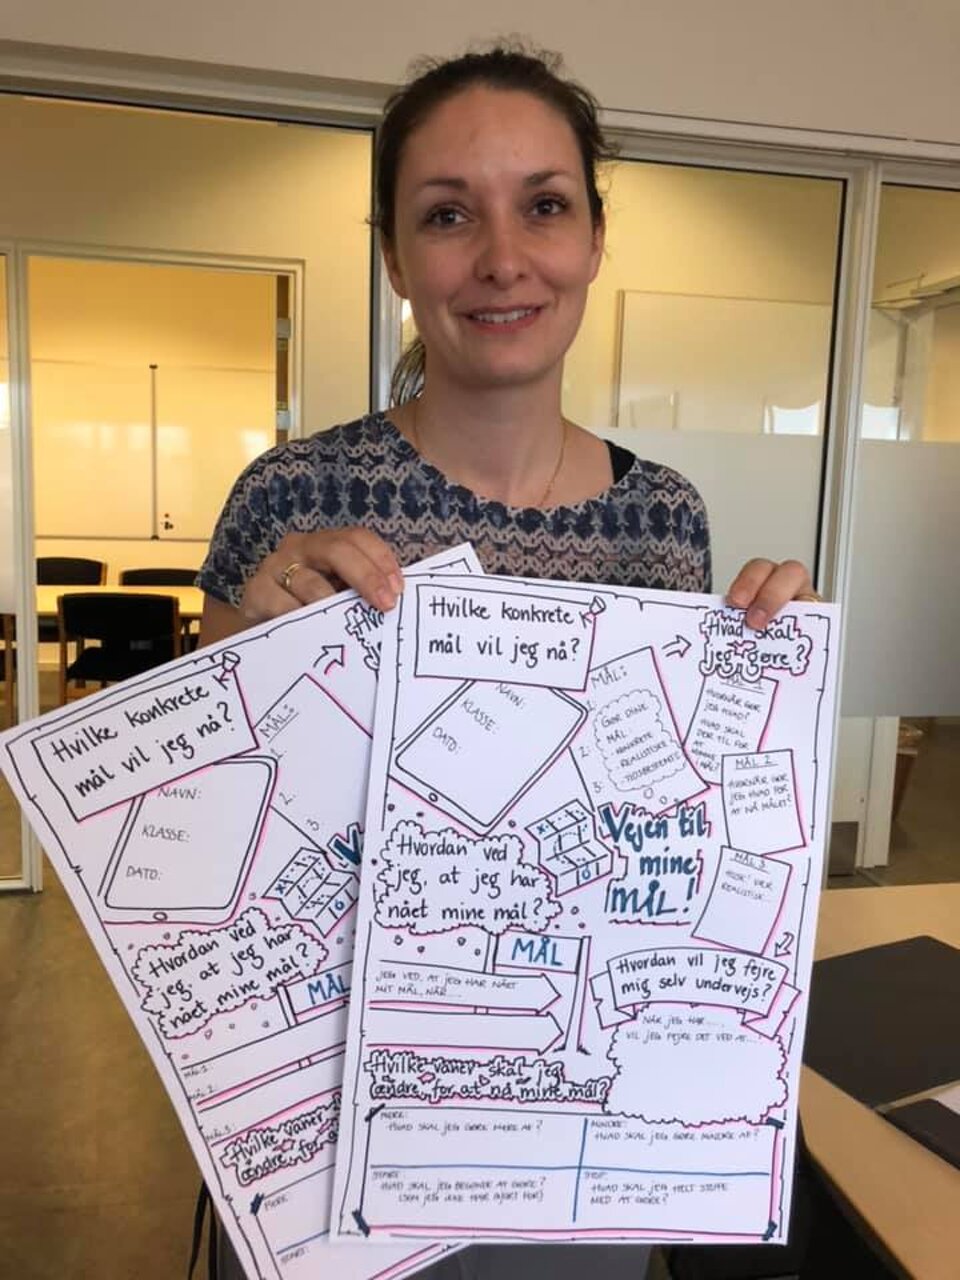 Hvilke konkrete
mål vil jeg nå?
NAVN:
KLASSE:
DATO:
MÅL:
1.
2.
3.
GØR DINE
MÅL:
- KONKRETE
- REALISTISKE
- TIDSBESTEMTE
Hvad skal
jeg gøre?
MÅL 1
HVORNÅR GØR
JEG HVAD?
HVAD SKAL
DER TIL FOR
AT KOMME
I MÅL?
MÅL 2
HVORNÅR GØR
JEG HVAD FOR
AT NÅ MÅLET?
MÅL 3
HUSK! VÆR
REALISTISK...
Vejen til
mine
MÅL!
Hvordan ved
jeg, at jeg har
nået mine mål?
MÅL
JEG VED, AT JEG HAR NÅET
MIT MÅL, NÅR....
Hvordan vil jeg fejre
mig selv undervejs?
NÅR JEG HAR.....
VIL JEG FEJRE DET VED AT....
Hvilke vaner skal jeg
ændre, for at nå mine mål?
MERE:
HVAD SKAL JEG GØRE MERE AF?
MINDRE:
HVAD SKAL JEG GØRE MINDRE AF?
START:
HVAD SKAL JEG BEGYNDE AT GØRE?
(SOM JEG IKKE HAR GJORT FØR)
STOP:
HVAD SKAL JEG HELT STOPPE
MED AT GØRE?
Hvilke konkrete
mål vil jeg nå?
NAVN:
KLASSE:
DATO:
MÅL:
1.
2.
3.
Hvordan ved
jeg, at jeg har
nået mine mål?
MÅL
MÅL 1:
MÅL 2:
MÅL 3:
Hvilke vaner
ændre, for a
MERE
START: